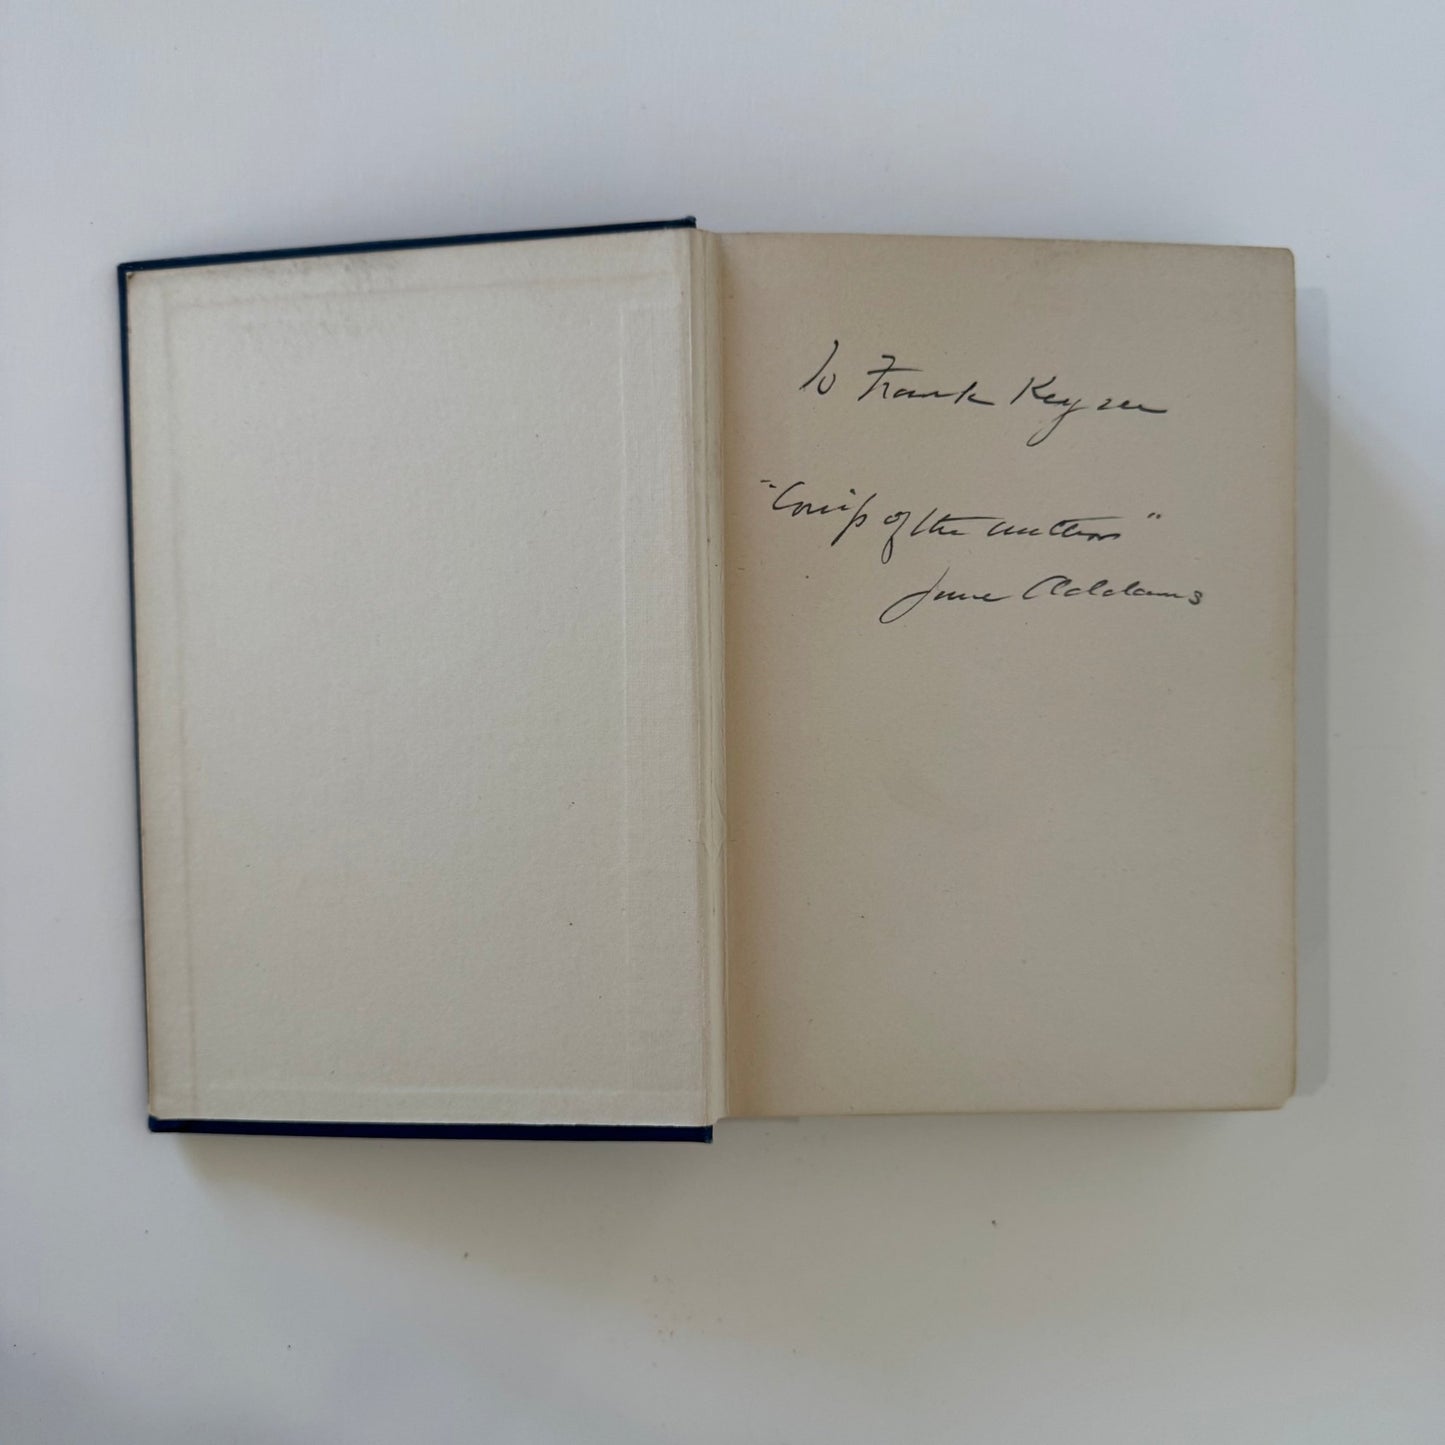 To Frank Keyzer
"Comp's of the author"
Jane Addams